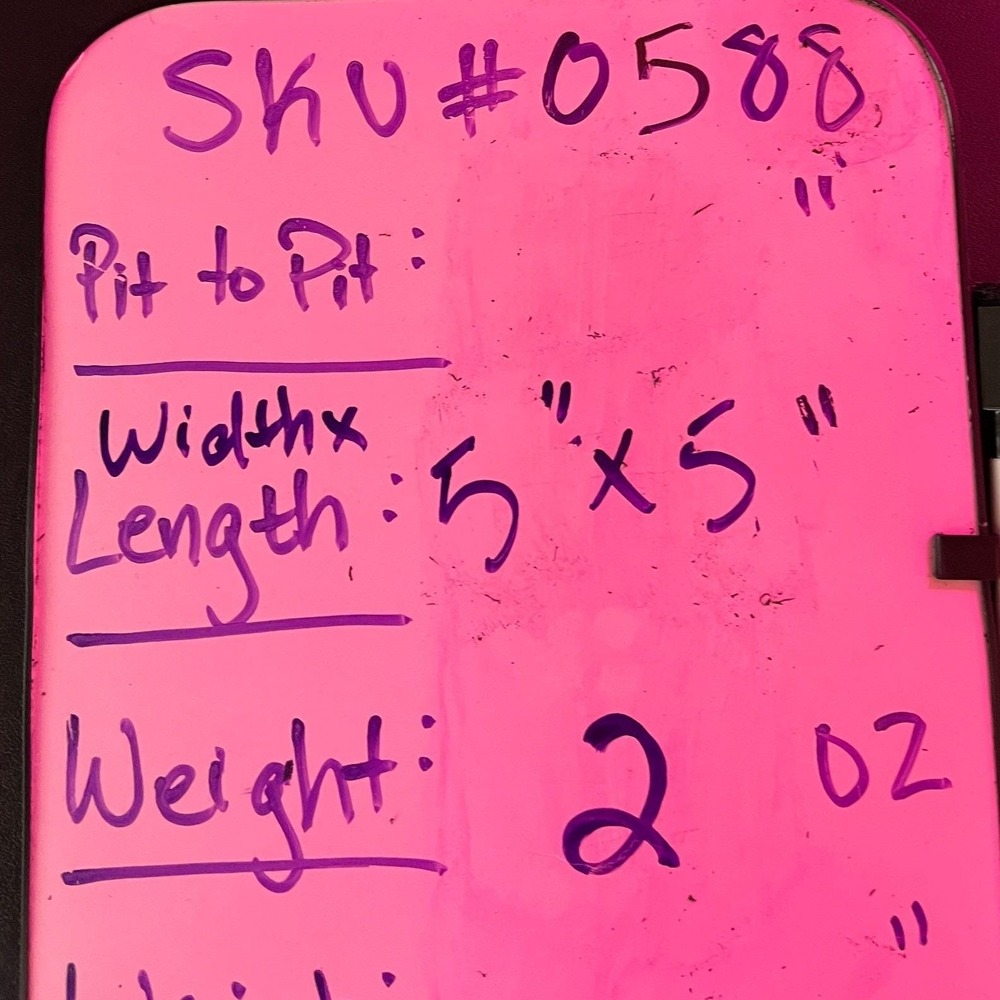 SKU #0588
"
Pit to Pit:
Width x
Length: 5" x 5"
Weight: 2 oz
"